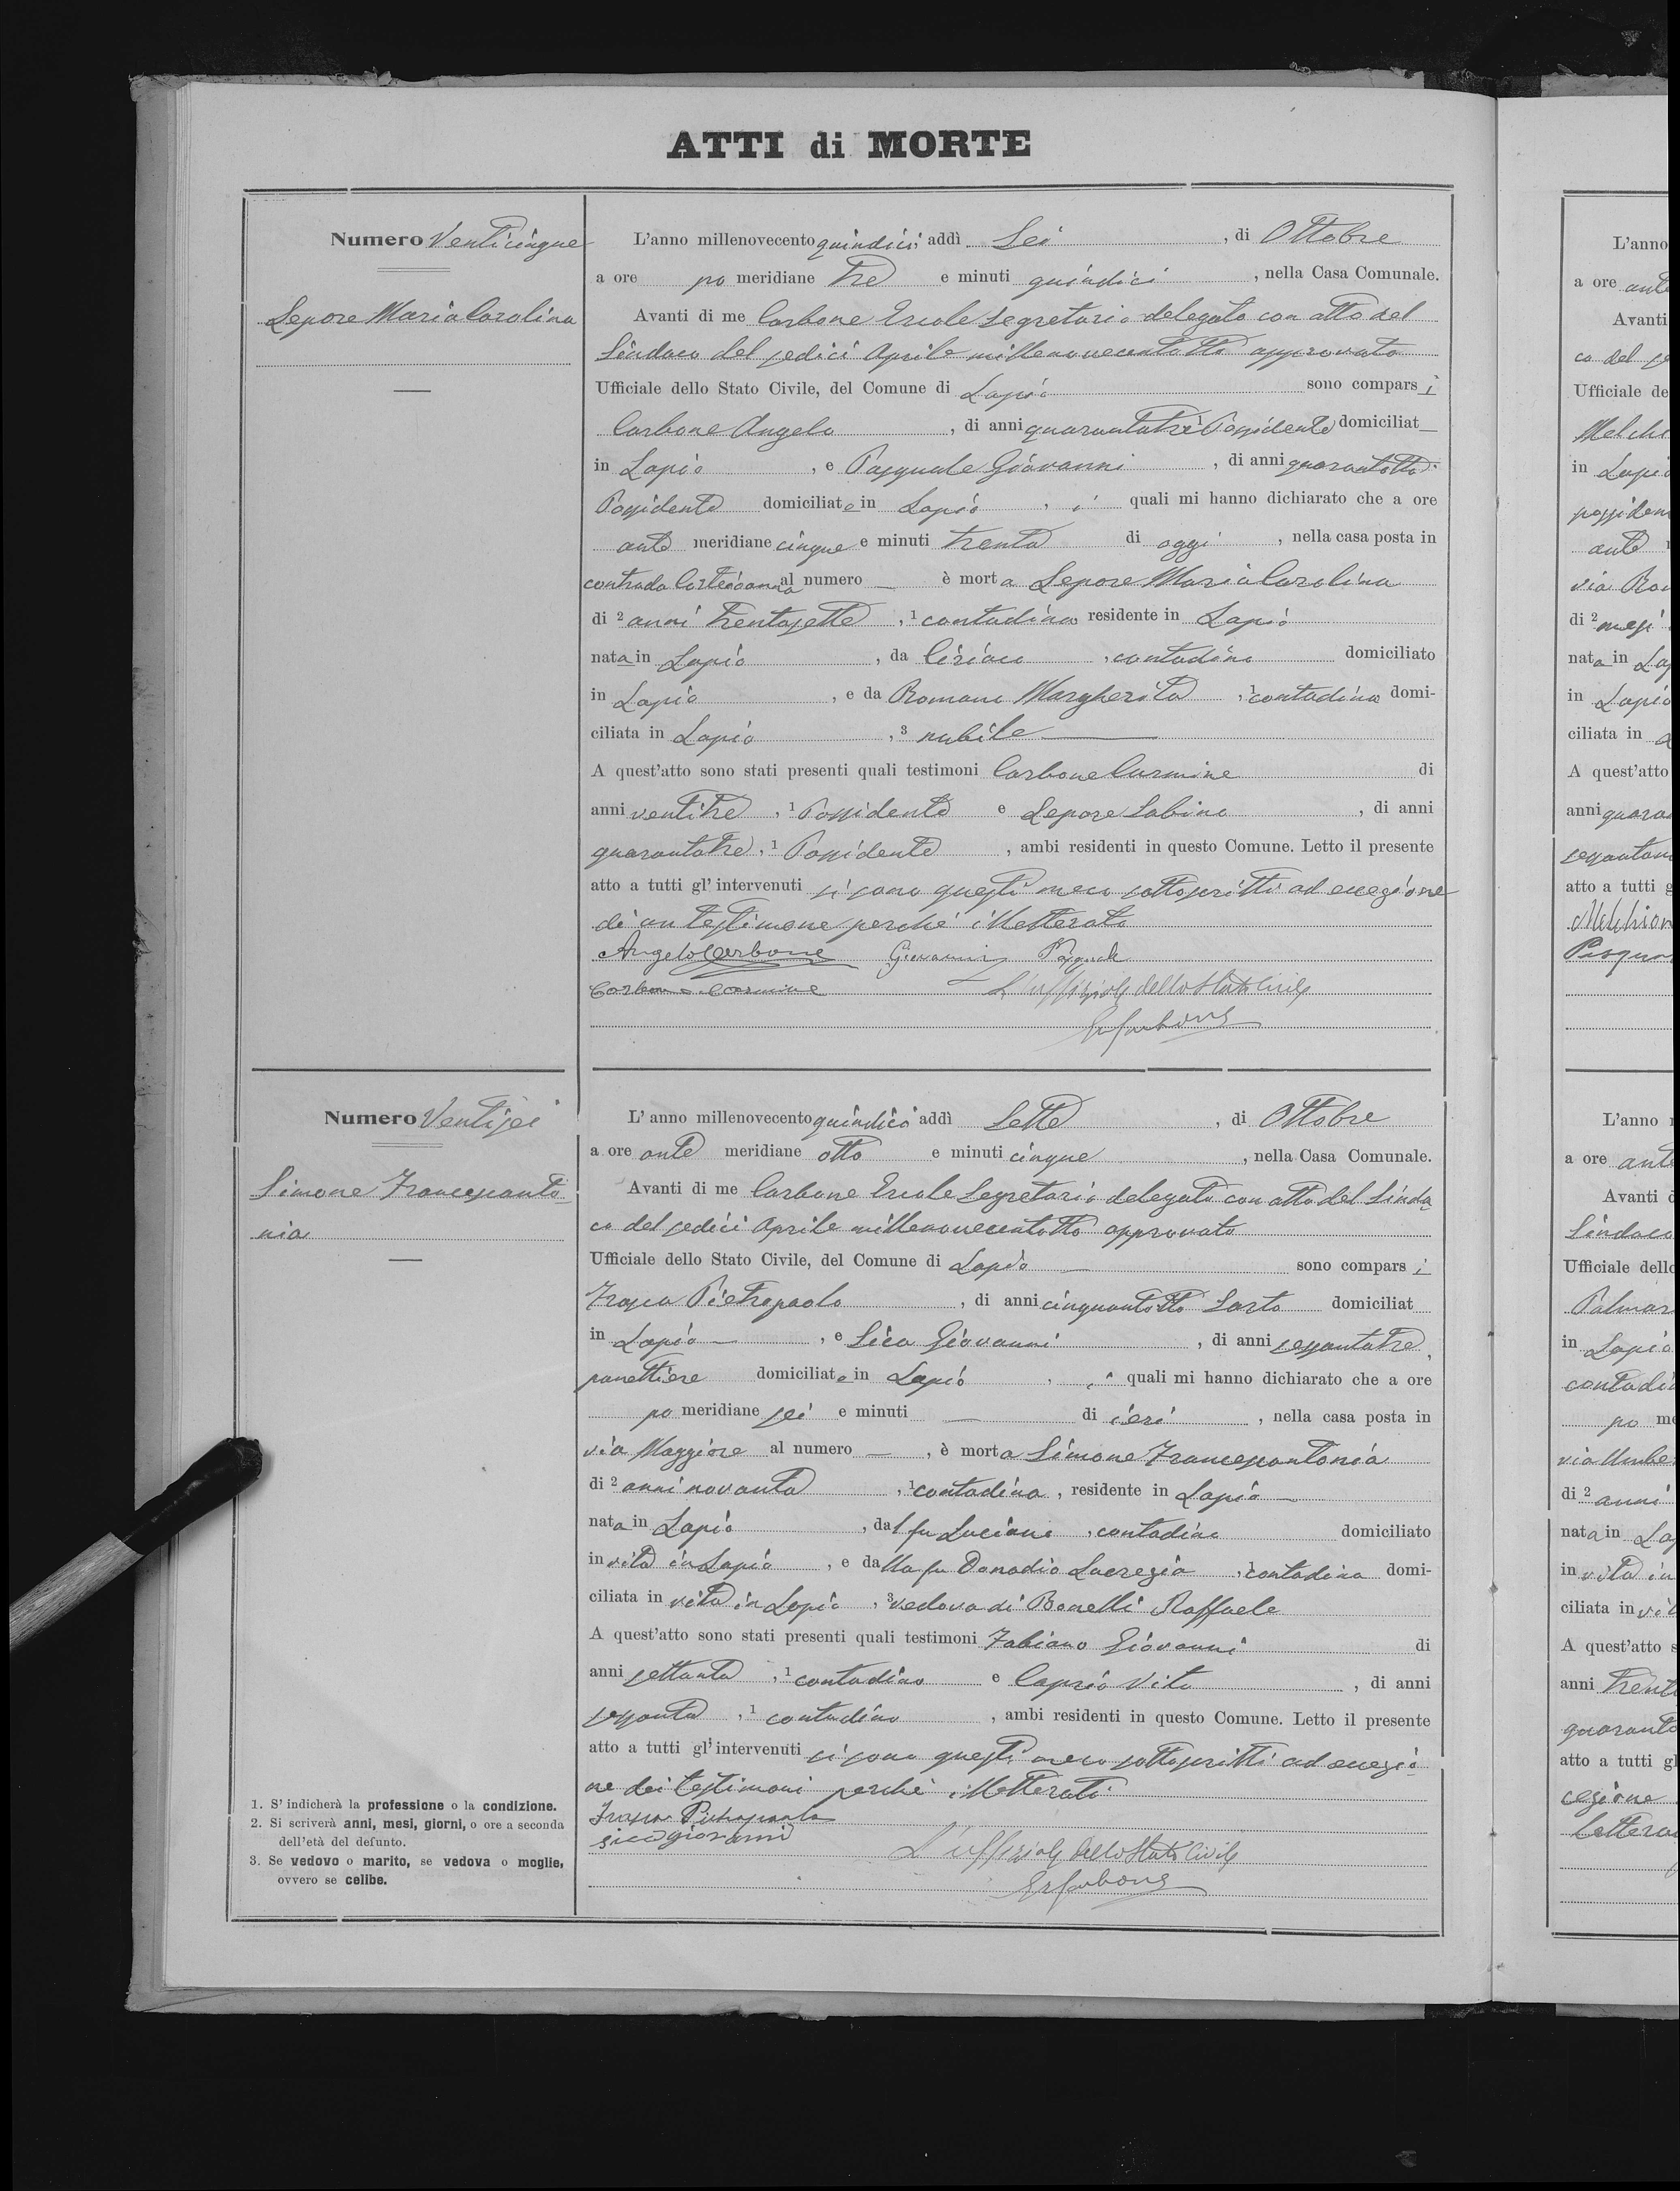 ATTI di MORTE
Numero Venticinque
Lepore Maria Carolina
L'anno millenovecento quindici addì Sei, di Ottobre
a ore po meridiane tre e minuti quindici, nella Casa Comunale.
Avanti di me Carbone Ercole Segretario delegato con atto del
Sindaco del sedici Aprile millenovecentotto approvato
Ufficiale dello Stato Civile, del Comune di Lapio sono comparsi
Carbone Angelo, di anni quarantatre 1 Possidente domiciliat
in Lapio, e Pasquale Giovanni, di anni quarantotto
Possidente domiciliato in Lapio, i quali mi hanno dichiarato che a ore
ante meridiane cinque e minuti trenta di oggi, nella casa posta in
contrada al numero — è morta Lepore Maria Carolina
di 2 anni trentasette, 1 contadina residente in Lapio
nata in Lapio, da Ciriaco, contadino domiciliato
in Lapio, e da Romano Margherita, 1 contadina domi-
ciliata in Lapio, 3 nubile —
A quest'atto sono stati presenti quali testimoni Carbone Carmine di
anni ventitre, 1 Possidente e Lepore Sabino, di anni
quarantatre, 1 Possidente, ambi residenti in questo Comune. Letto il presente
atto a tutti gl'intervenuti si sono questi meco sottoscritti ad eccezione
di un testimone perché illetterato
Angelo Carbone Giovanni Pasquale
Carbone Carmine L'uffiziale dello Stato Civile
Er Carbone
Numero Ventisei
Simone Francescanto
nia
L'anno millenovecento quindici addì Sette, di Ottobre
a ore ante meridiane otto e minuti cinque, nella Casa Comunale.
Avanti di me Carbone Ercole Segretario delegato con atto del Sinda
co del sedici Aprile millenovecentotto approvato
Ufficiale dello Stato Civile, del Comune di Lapio — sono comparsi
Frasca Pietropaolo, di anni cinquantotto Sarto domiciliat
in Lapio —, e Sica Giovanni, di anni sessantatre,
panettiere domiciliato in Lapio, i quali mi hanno dichiarato che a ore
po meridiane sei e minuti — di ieri, nella casa posta in
via Maggiore al numero —, è morta Simone Francescantonia
di 2 anni novanta, 1 contadina, residente in Lapio —
nata in Lapio, dal fu Luciano, contadino domiciliato
in vita in Lapio, e dalla fu Donadio Lucrezia, 1 contadina domi-
ciliata in vita in Lapio, 3 vedova di Bonelli Raffaele
A quest'atto sono stati presenti quali testimoni Fabiano Giovanni di
anni settanta, 1 contadino e Caprio Vito, di anni
sessanta, 1 contadino, ambi residenti in questo Comune. Letto il presente
atto a tutti gl'intervenuti si sono questi meco sottoscritti ad eccezio
ne dei testimoni perché illetterati
Frasca Pietropaolo
Sica giovanni L'uffiziale dello Stato Civile
Er Carbone
1. S'indicherà la professione o la condizione.
2. Si scriverà anni, mesi, giorni, o ore a seconda
dell'età del defunto.
3. Se vedovo o marito, se vedova o moglie,
ovvero se celibe.
L'anno
a ore ante
Avanti
co del se
Ufficiale de
Melchi
in Lapio
possiden
ante
di 2 mesi
nata in La
in Lapio
ciliata in
A quest'atto
anni quaran
atto a tutti g
Melchion
Pasqua
L'anno
a ore ante
Avanti d
Sindaco
Ufficiale dello
Palmar
in Lapio
contadi
po me
via Umbe
di 2 anni
nata in La
in vita in
ciliata in vit
A quest'atto s
anni trent
quaranta
atto a tutti gl
cezione